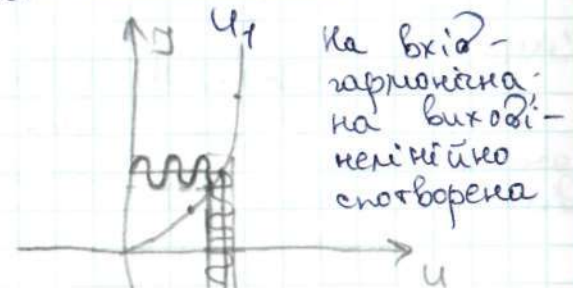 I
U₁
U
На вхід -
гармонічна,
на виході -
нелінійно
спотворена